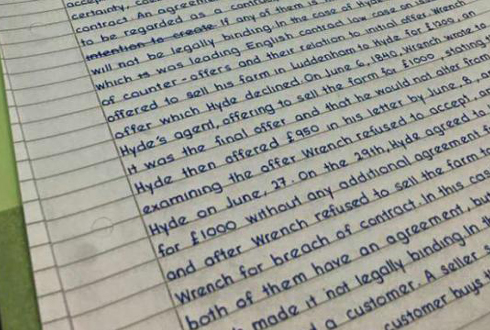 certainty, co
contract. An agreem
to be regarded as a contra
intention to create If any of them is
will not be legally binding. In the case of Hyde
which is was leading English contract law case on
of counter-offers and their relation to initial offer. Wrench
offered to sell his farm in Luddenham to Hyde for £1200, an
offer which Hyde declined. On June 6, 1840, Wrench wrote to
Hyde's agent, offering to sell the farm for £1000, stating
it was the final offer and that he would not alter from
Hyde then offered £950 in his letter by June, 8, a
examining the offer Wrench refused to accept, an
Hyde on June, 27. On the 29th, Hyde agreed to
for £1000 without any additional agreement f
and after Wrench refused to sell the farm to
Wrench for breach of contract. In this cas
both of them have an agreement, but
made it not legally binding. In th
a customer. A seller s
customer buys t